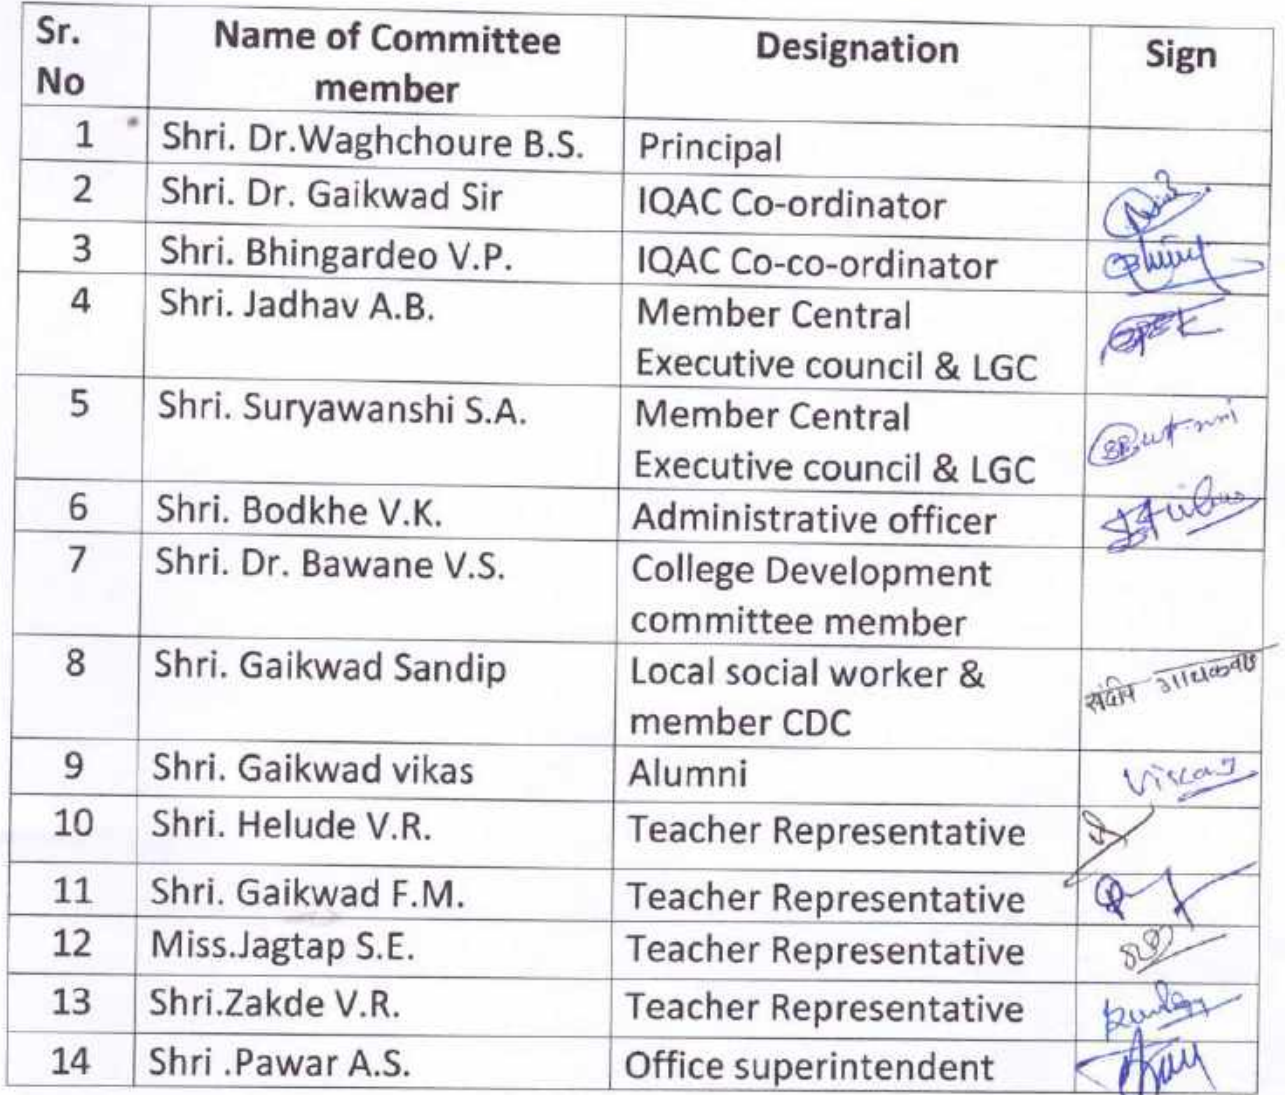 Sr. No Name of Committee member Designation Sign
1 Shri. Dr.Waghchoure B.S. Principal
2 Shri. Dr. Gaikwad Sir IQAC Co-ordinator
3 Shri. Bhingardeo V.P. IQAC Co-co-ordinator
4 Shri. Jadhav A.B. Member Central
Executive council & LGC
5 Shri. Suryawanshi S.A. Member Central
Executive council & LGC
6 Shri. Bodkhe V.K. Administrative officer
7 Shri. Dr. Bawane V.S. College Development
committee member
8 Shri. Gaikwad Sandip Local social worker & संदीप गायकवाड
member CDC
9 Shri. Gaikwad vikas Alumni
10 Shri. Helude V.R. Teacher Representative
11 Shri. Gaikwad F.M. Teacher Representative
12 Miss.Jagtap S.E. Teacher Representative
13 Shri.Zakde V.R. Teacher Representative
14 Shri .Pawar A.S. Office superintendent